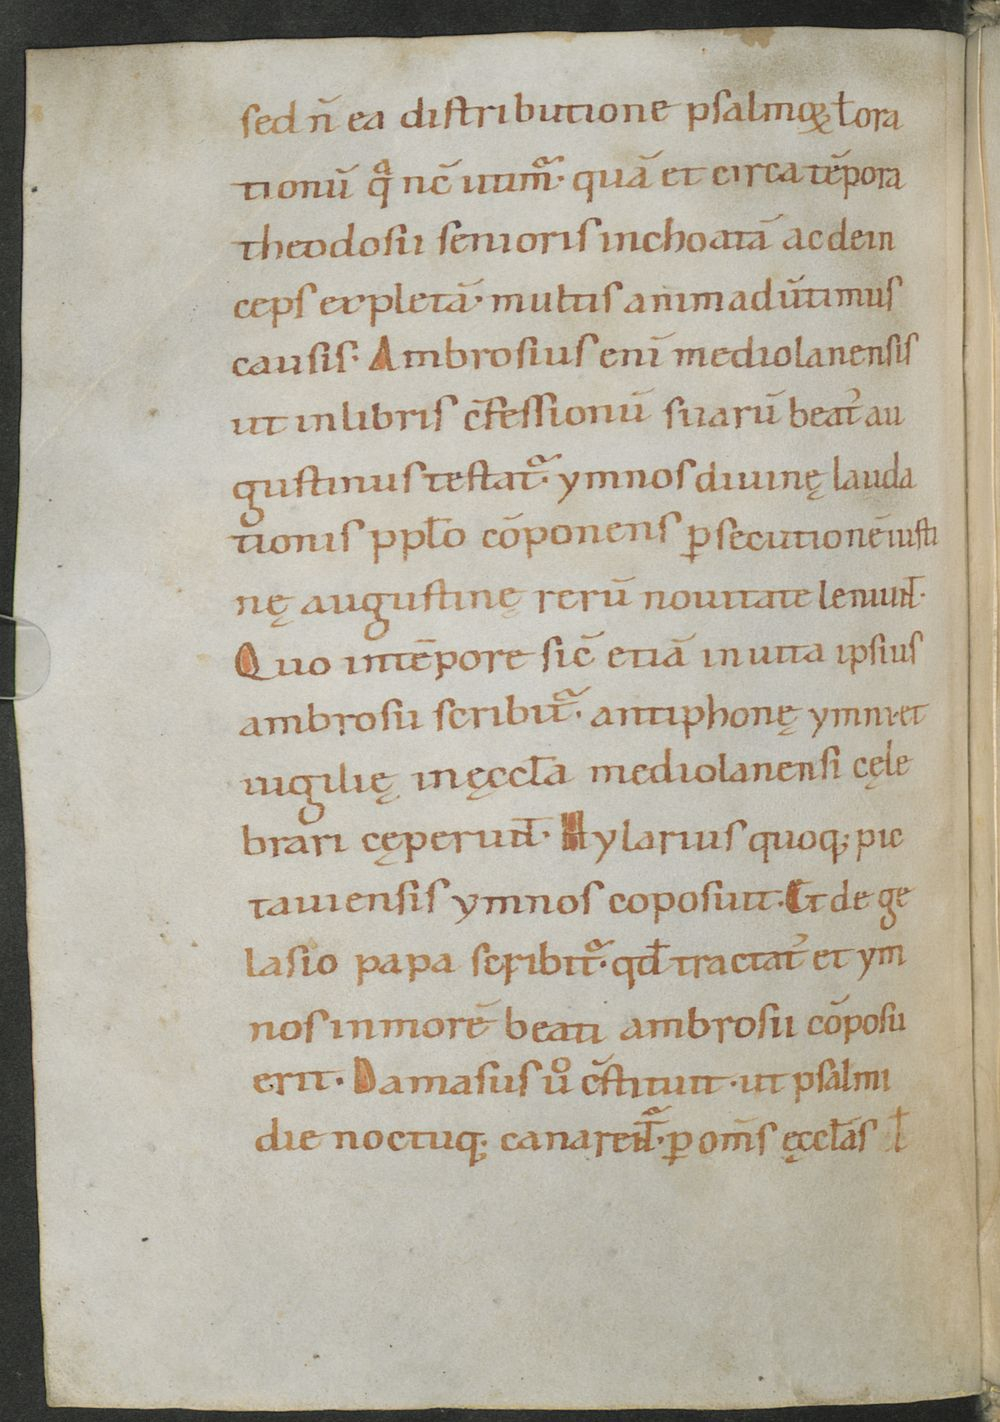 sed n̄ ea distributione psalmoꝝ ł ora
tionū qͣ nc̄ utimᷓ· quā et circa tēpora
theodosii senioris inchoatā ac dein
ceps expletā· multis animadūtimus
causis· Ambrosius enī mediolanensis
ut in libris c̄fessionū suarū beatꝰ au
gustinus testatᷓ· ymnos diuinę lauda
tionis ppło cōponens ꝑsecutionē iusti
nę augustinę rerū nouitate leniuit·
Quo in tēpore sic̄ etiā in uita ipsius
ambrosii scribitᷓ· antiphonę ymni et
uigilię in ęccła mediolanensi cęle
brari cęperunt̄· Hylarius quoq; pic
tauiensis ymnos coposuit· Et de ge
lasio papa scribitᷓ· qđ tractatꝰ et ym
nos in morē beati ambrosii cōposu
erit· Damasus uͦ c̄stituit· ut psalmi
die noctuq; canarent̄ᷓ· ꝑ om̄s ęccłas ł